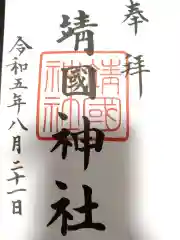 奉拝
靖國神社
靖國神社
令和五年八月二十一日